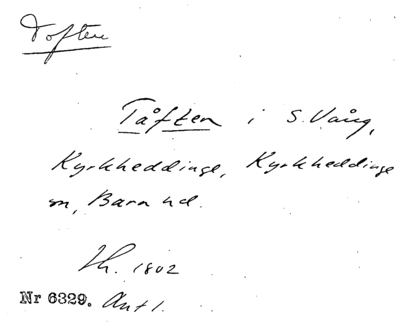 Toften
Tåften i S. Vång,
Kyrkheddinge, Kyrkheddinge
sn, Bara hd.
Lh. 1802
Nr 6329. Ant 1.